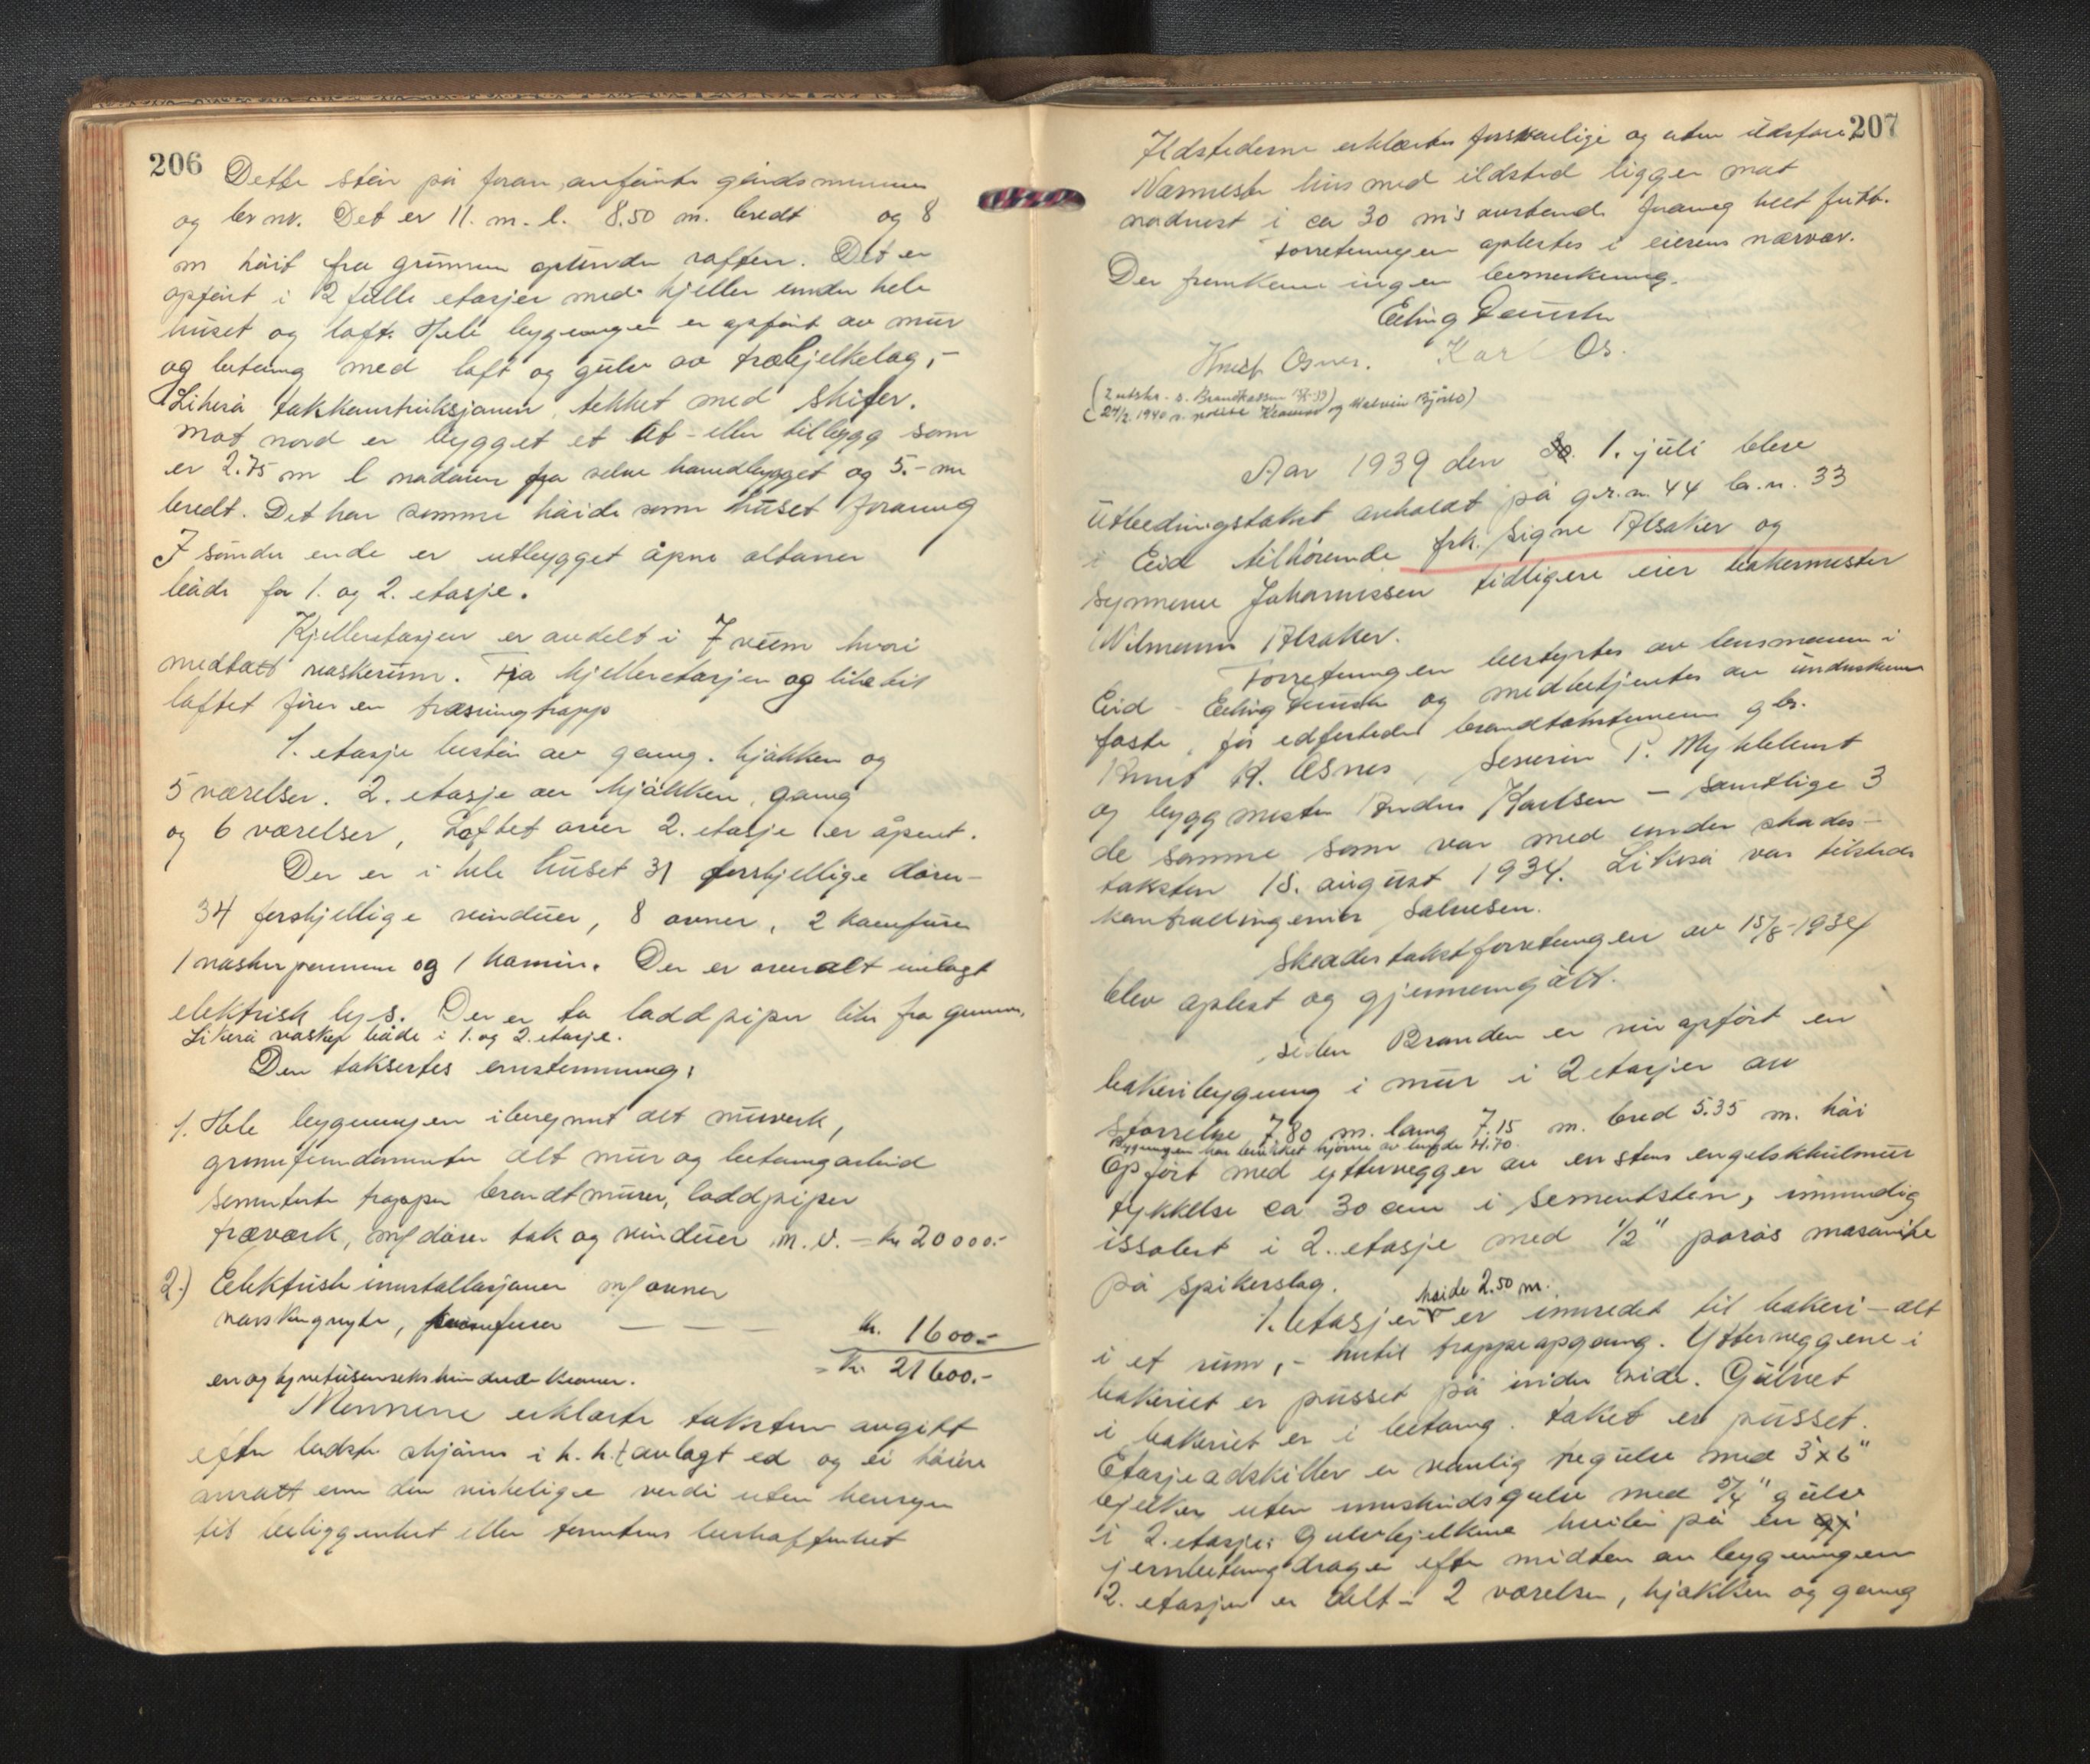 206
Dette står på foran anførte gårdsnummer
og br nr. Det er 11. m. l. 8.50 m. bredt og 8
m höit fra grunnen optunder raften. Det er
opført i 2 fulle etasjer med kjeller under hele
huset og loft. Hele bygningen er opført av mur
og betong med loft og gulv av træbjelkelag,-
Likeså takkonstruksjonen, tekket med skifer.
Mot nord er bygget et ut- eller tilbygg som
er 2.75 m l nedover fra selve hovedbygget og 5.- m
bredt. Det har samme höide som huset foröving
I søndre ende er utbygget åpne altaner
både for 1. og 2. etasje.
Kjelleretasjen er avdelt i 7 rum hvori
medtatt vaskerum. Fra kjelleretasjen og like til
loftet fører en træsvingtrapp
1. etasje består av gang. kjøkken og
5 værelser. 2. etasje av kjøkken, gang
og 6 værelser, Loftet over 2. etasje er åpent.
Der er i hele huset 31 forskjellige dører-
34 forskjellige vinduer, 8 ovner, 2 komfurer
1 vaskerpanne og 1 kamin. Der er overalt innlagt
elektrisk lys. Der er to loddpiper like fra grunnen,
Likeså vasker både i 1. og 2. etasje.
Den taksertes enstemmig:
1. Hele bygningen iberegnet alt murverk,
grunnfundamenter alt mur og betongarbeid
sementerte trapper brandtmurer, loddpiper
træværk, m/ dører tak og vinduer m. v. - kr 20000.-
2.) Elektriske innstallasjoner m/ ovner
vaskegryte, komfurer — — — kr. 1600.-
= kr. 21600.-
en og tyvetusensekshundrede kroner.
Mennene erklærte taksten avgitt
efter bedste skjønn i h. h. t avlagt ed og ei høiere
ansatt enn den virkelige verdi uten hensyn
til beliggenhet eller tomtens beskaffenhet
207
Ildstederne erklærtes forsvarlige og uten ildsfare
Nærmeste hus med ildsted ligger mot
nordvest i ca 30 m's avstand. foröving helt fritt.
Forretningen oplestes i eierens nærvær.
Der fremkom ingen bemerkning.
Erling
Knut Osnes. Karl Os.
(2 utskr. s. Brandkassen
(24/2 1940 s. politi og
Aar 1939 den 1. juli blev
Utbedringstakst avholdt på gr.n. 44 br.n. 33
i Eid tilhørende frk. Signe Alsaker og
Synneve Johannessen tidligere eier bakermester
Wilmann Alsaker.
Forretningen bestyrtes av lensmannen i
Eid - Erling og medbetjentes av underskrevne
faste, før edfestede brandtakstmenn gbr.
Knut K. Osnes, Severin P. Myklebust
og byggmester Anders Karlsen - samtlige 3
de samme som var med under skades-
taksten 15. august 1934. Likeså var tilstede
kontrollingeniør Salvesen.
Skadestakstforretningen av 15/8-1934
blev oplest og gjennemgått.
Siden Branden er nu opført en
bakeribygning i mur i 2 etasjer av
størrelse 7.80 m. lang 7.15 m. bred 5.35 m. höi
Bygningen har brukket hjørne av bredde 4.70.
Opført med yttervegger av en stens engelskhulmur
tykkelse ca 30 cm i sementsten, innvendig
issolert i 2. etasje med 1/2" porøs masonite
på spikerslag.
höide 2.50 m.
1. etasje er innredet til bakeri - alt
i et rum, - inntil trappeopgang. Ytterveggene i
bakeriet er pusset på indre side. Gulvet
i bakeriet er i betong. taket er pusset.
Etasjeadskiller er vanlig tregulv med 3"x6"
bjelker uten innskuddsgulv med 5/4" gulv
i 2. etasje. Gulvbjelkene hviler på en
jernbetongdrager efter midten av bygningen
2. etasje er delt i 2 værelser, kjøkken og gang